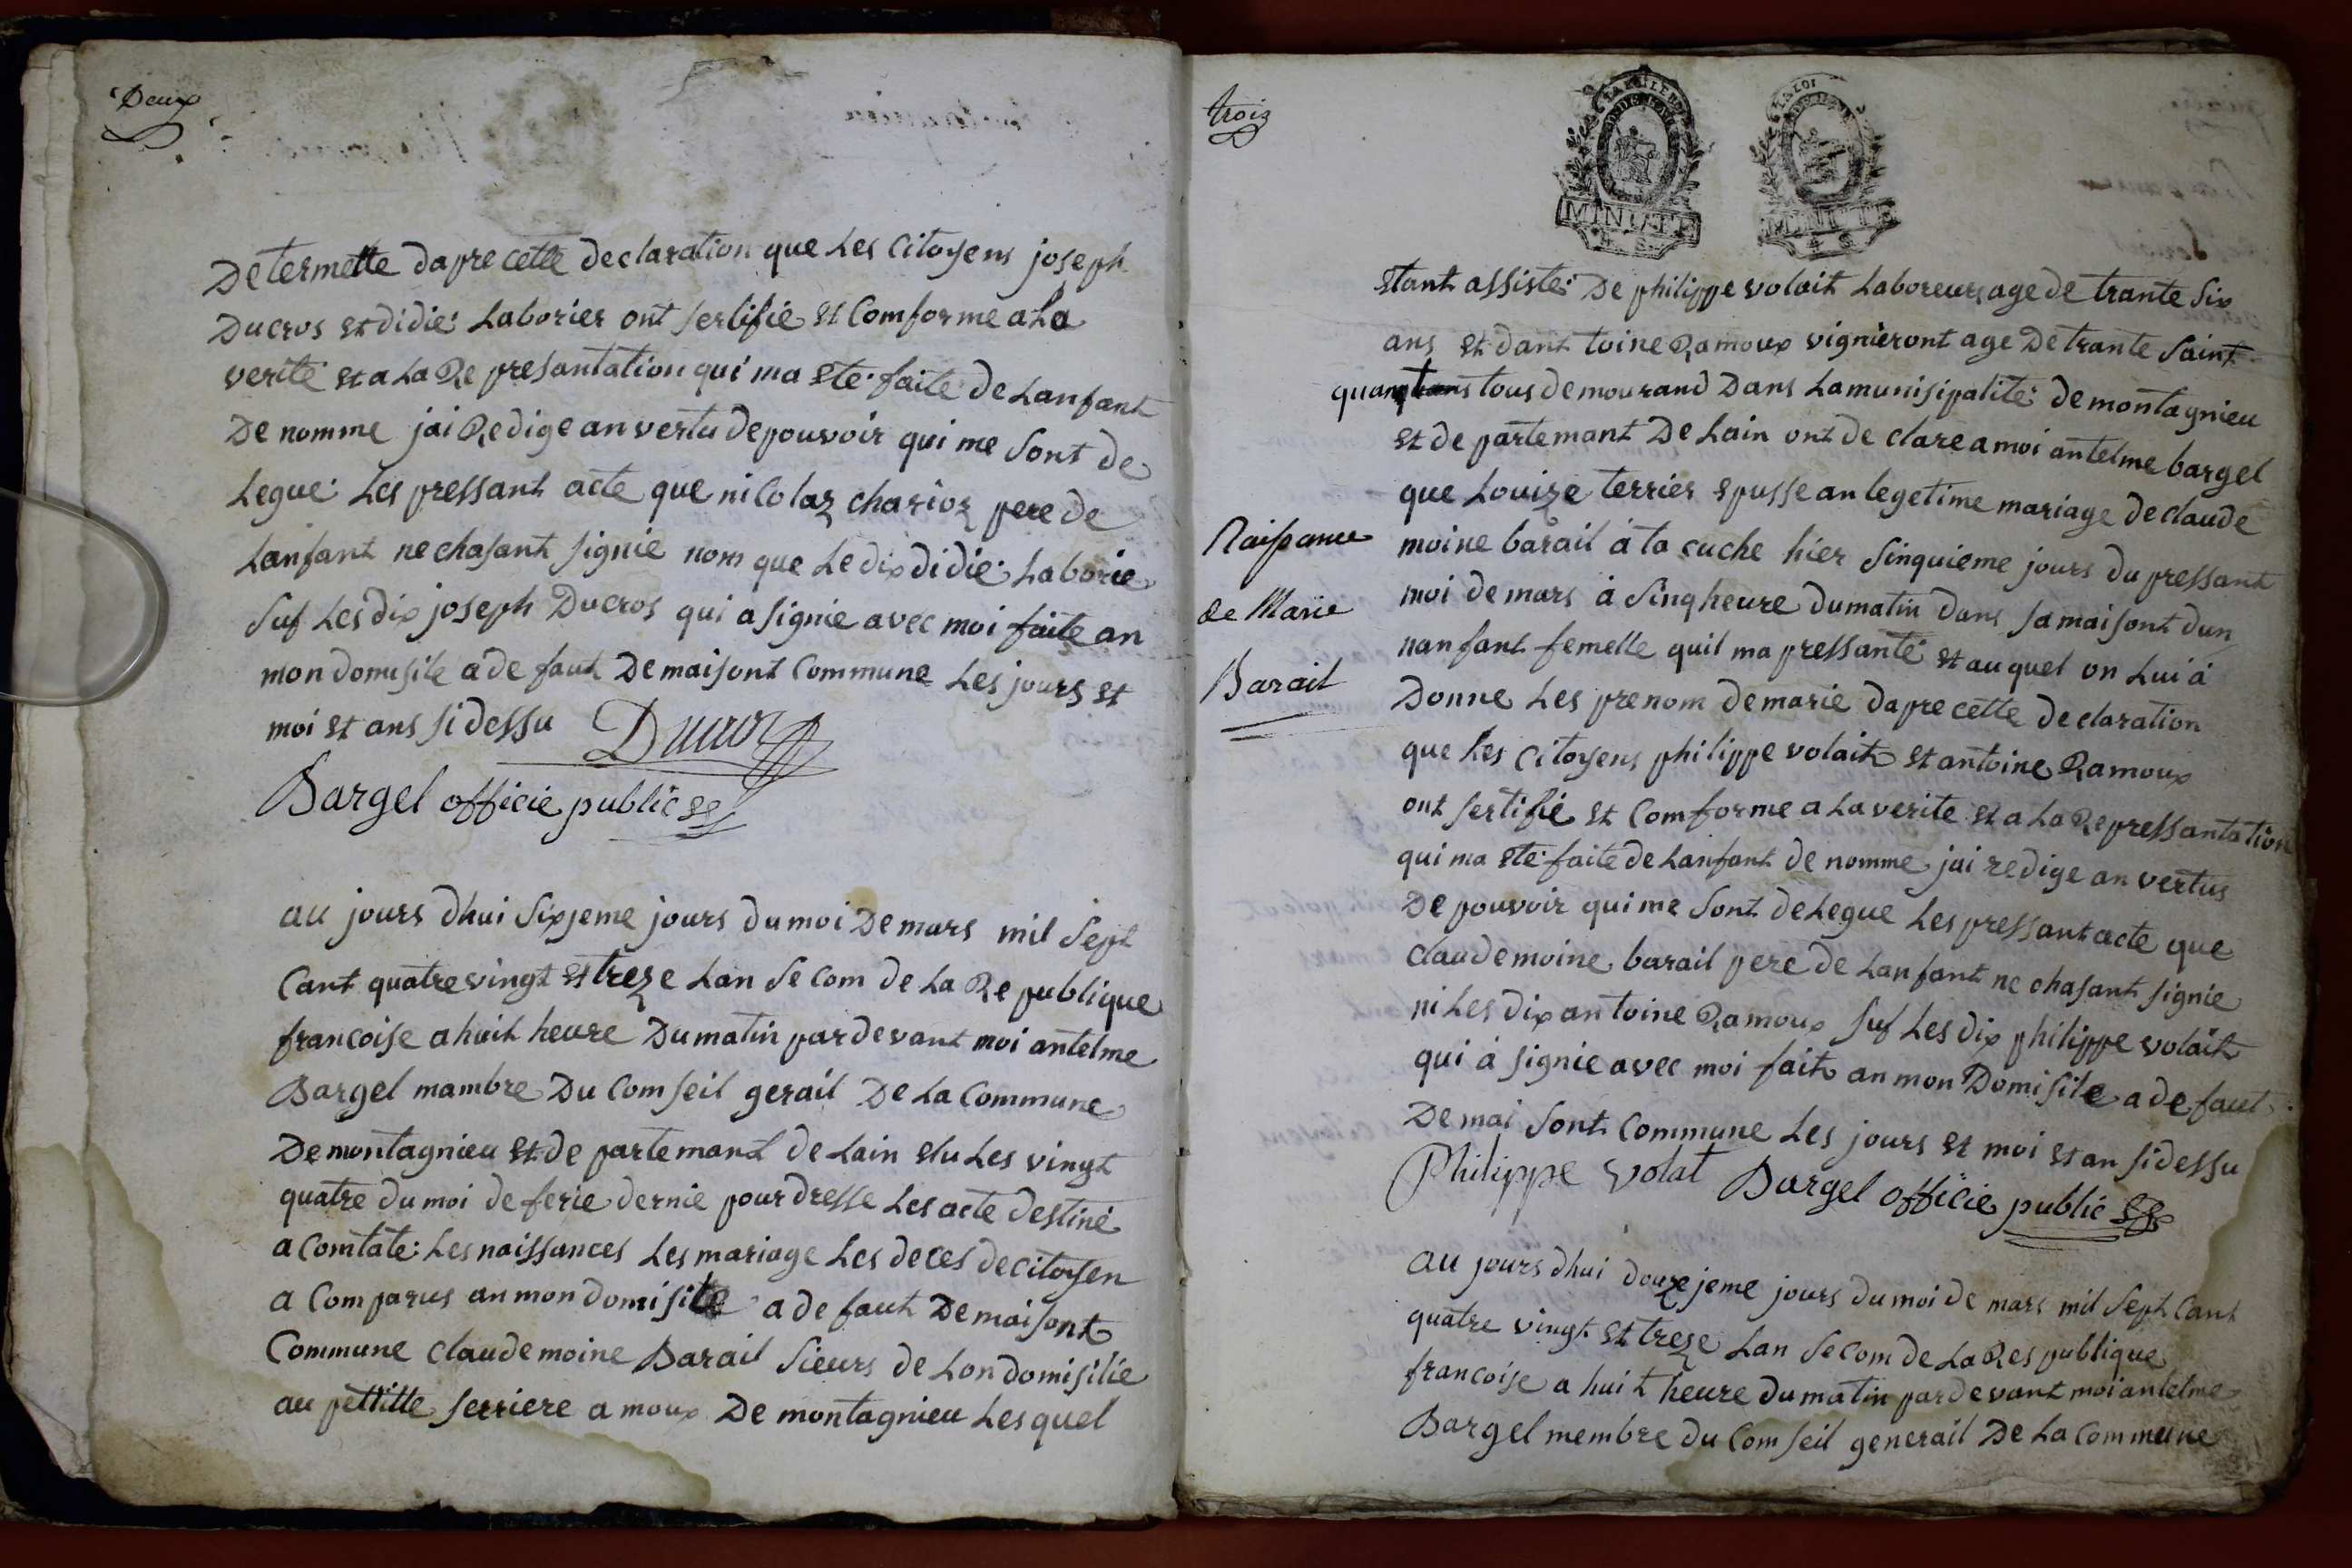 Deux
Determette dapre cette declaration que Les Citoyens joseph
Ducros et didié Laborier ont sertifie et Comforme a La
verite et a La Representation qui ma ete faite de Lanfant
De nomme jai Redige an vertu de pouvoir qui me Sont de
Legue Les pressant acte que nicolaz charioz pere de
Lanfant ne chasant signie nom que Le dix didie Laborie
suf Les dix joseph Ducros qui a signie avec moi faite an
mon domisile a de faut De maisont Commune Les jours et
moi et ans si dessu Ducros
Bargel officie public
au jours dhui sixjeme jours du moi De mars mil Sept
Cant quatre vingt et treze Lan Se Com de La Republique
francoise a huit heure Du matin par devant moi antelme
Bargel mambre Du Comseil gerail De La Commune
De montagnieu et de partemant de Lain elu Les vingt
quatre du moi de ferie dernie pour dresse Les acte destiné
a Comtate Les naissances Les mariage Les deces de citoyen
a Comparus an mon domisile a de faut De maisont
Commune claude moine Barail sieurs de Lon domisilie
au pettitte serriere a moux De montagnieu Lesquel
trois
LA LOI
MINUTE
LA LOI
MINUTE
etant assiste De philippe volait Laboreurs age de trante six
ans et dant toine Ramoux vignieront age De trante saint
quan tans tous demourand Dans La munisipalite de montagnieu
et de partemant De Lain ont de clare a moi antelme bargel
que Louize terrier epusse an legetime mariage de claude
Naissance
moine barail á ta cuche hier sinquieme jours du pressant
de Marie
moi de mars á sinq heure du matin dans sa maisont dun
Barail
nanfant femelle quil ma pressanté et au quel on Lui á
Donne Les prenom de marie dapre cette declaration
que Les Citoyens philippe volait et antoine Ramoux
ont sertifié et Comforme a La verite et a La Repressantation
qui ma ete faite de Lanfant de nomme jai redige an vertus
De pouvoir qui me Sont deLegue Les pressant acte que
claude moine barail pere de Lanfant ne chasant signie
ni Les dix antoine Ramoux suf Les dix philippe volait
qui á signie avec moi fait an mon Domisile a de faut
De mai Sont Commune Les jours et moi et an si dessu
Philippe Volat Bargel officie public
au jours dhui douzejeme jours du moi de mars mil Sept Cant
quatre vingt et treze Lan Se Com de La Res publique
francoise a huit heure du matin par devant moi antelme
Bargel membre du Comseil generail De La Commune